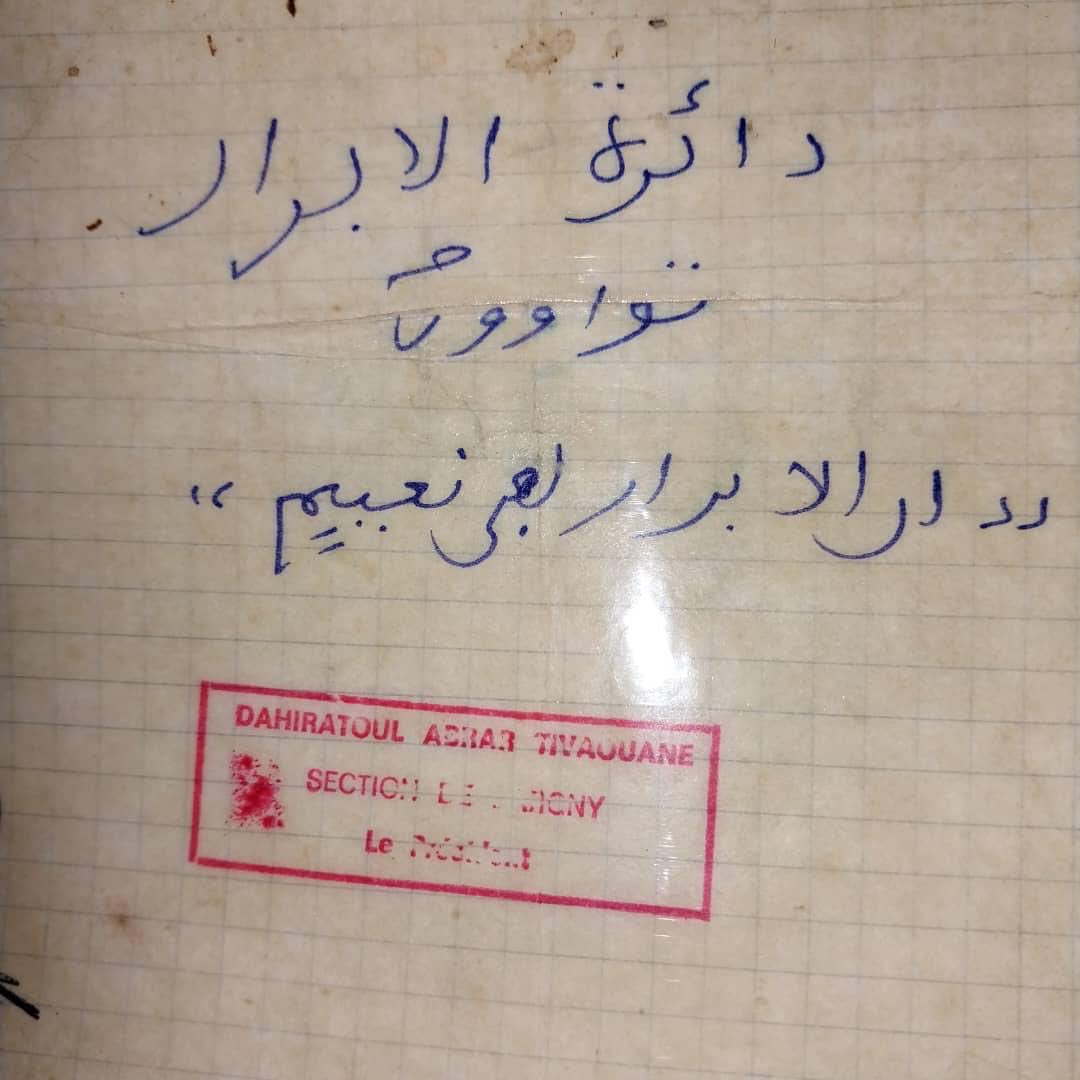 دائرة الابرار
تواوون
"ان الابرار لفى نعيم"
DAHIRATOUL ABRAR TIVAOUANE
SECTION DE
Le Président